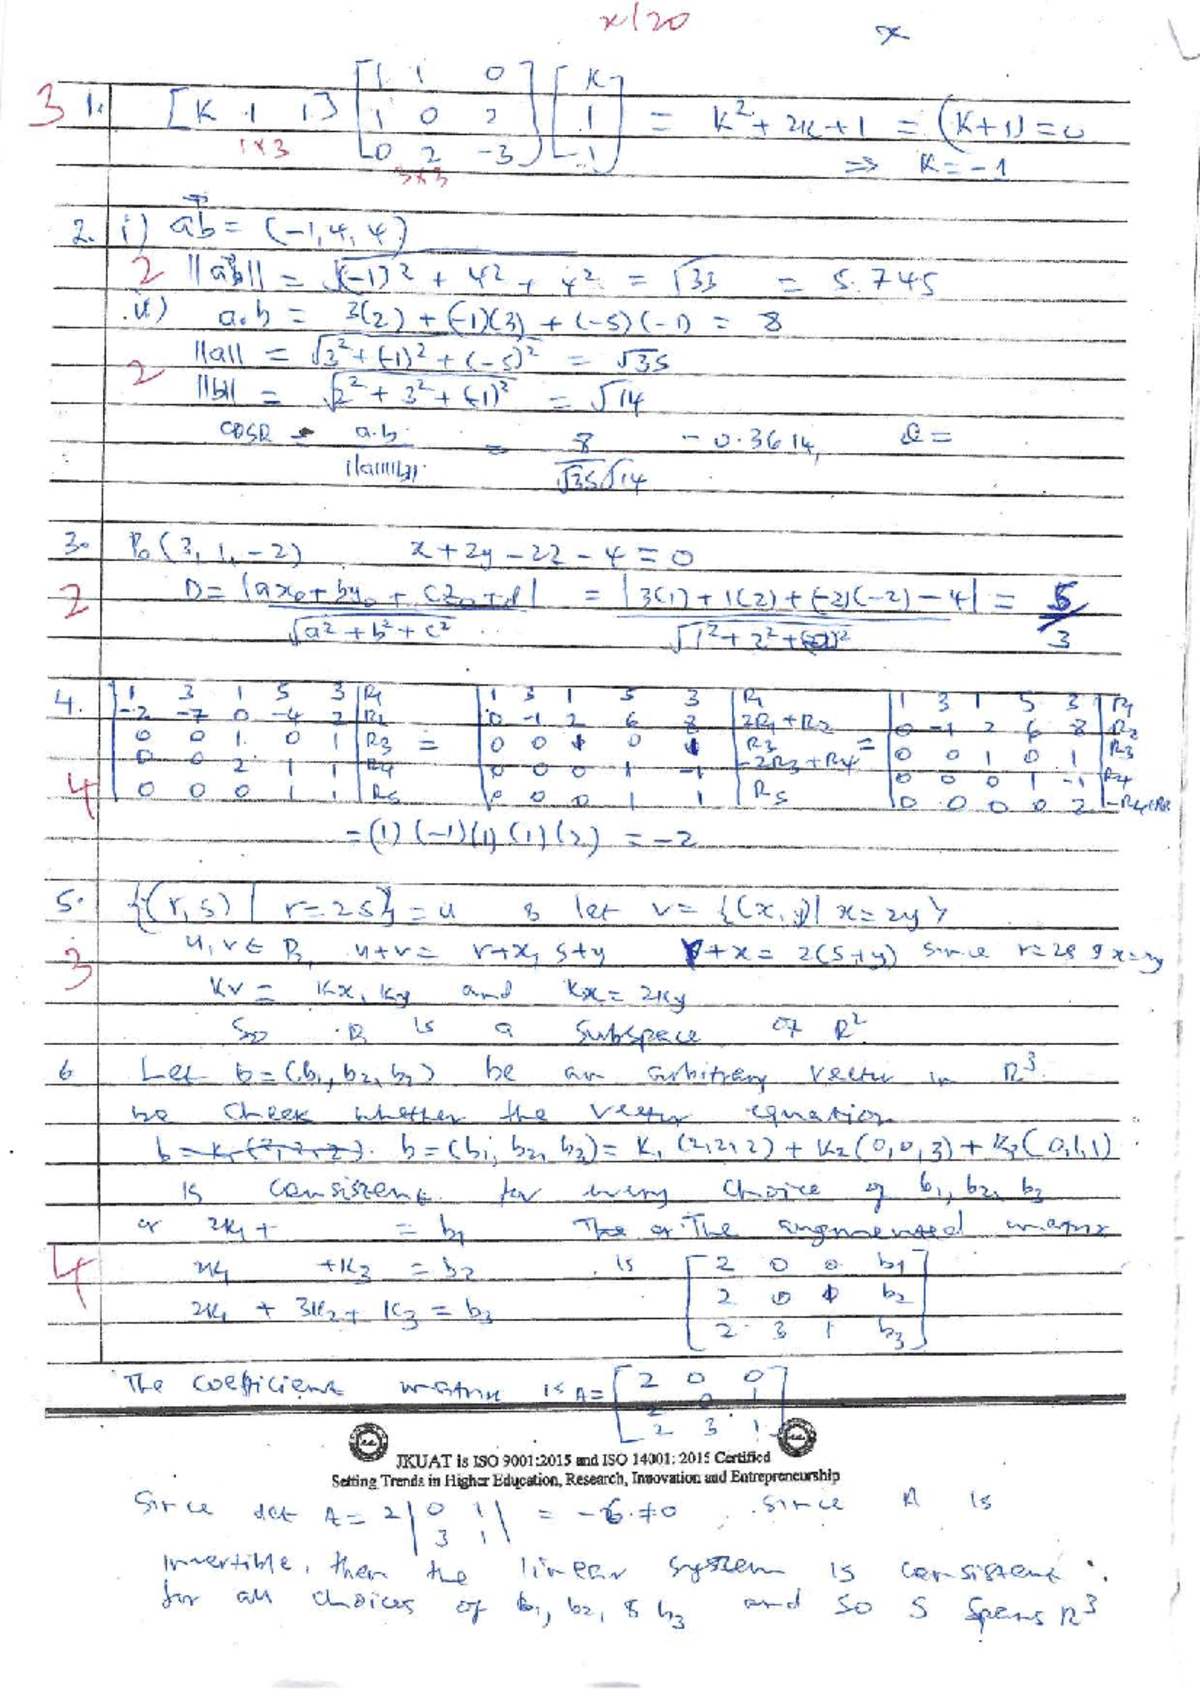 x/20 x
3 1. [K 1 1] [1 1 0] [K]
1 0 2 1 = K² + 2K + 1 = (K+1) = 0
0 2 -3 1 ⇒ K = -1
1×3 3×3
2. i) ab = (-1, 4, 4)
2 ||ab|| = √(-1)² + 4² + 4² = √33 = 5.745
ii) a.b = 3(2) + (-1)(3) + (-5)(-1) = 8
||a|| = √3² + (-1)² + (-5)² = √35
2 ||b|| = √2² + 3² + (-1)² = √14
a.b = 8 - 0.3614,
||a||||b|| √35 √14
3. P₀(3, 1, -2) x + 2y - 2z - 4 = 0
2 D = |ax₀ + by₀ + cz₀ + d| = |3(1) + 1(2) + (-2)(-2) - 4| = 5
√a² + b² + c² √1² + 2² + (-2)² 3
4. |1 3 1 5 3| R₁ |1 3 1 5 3| R₁ |1 3 1 5 3| R₁
-2 -7 0 -4 2 R₂ 0 -1 2 6 8 2R₁+R₂ 0 -1 2 6 8 R₂
0 0 1 0 1 R₃ = 0 0 1 0 1 R₃ = 0 0 1 0 1 R₃
0 0 2 1 1 R₄ 0 0 0 1 -1 -2R₃+R₄ 0 0 0 1 -1 R₄
4 0 0 0 1 1 R₅ 0 0 0 1 1 R₅ 0 0 0 0 2 -R₄+R₅
= (1)(-1)(1)(1)(2) = -2
5. {(r, s) | r = 2s} = u & let v = {(x, y) | x = 2y}
3 u, v ∈ R, u+v = r+x, s+y r+x = 2(s+y) since r=2s & x=2y
Kv = Kx, Ky and Kx = 2Ky
So R is a subspace of R²
6 Let b = (b₁, b₂, b₃) be an arbitrary vector in R³.
we check whether the vector equation
b = K₁(2, 2, 2). b = (b₁, b₂, b₃) = K₁(2,2,2) + K₂(0,0,3) + K₃(0,1,1)
is consistent for every choice of b₁, b₂, b₃
or 2K₁ + = b₁ The augmented matrix
4 2K₁ + K₃ = b₂ is [2 0 0 b₁]
2K₁ + 3K₂ + K₃ = b₃ 2 0 1 b₂
2 3 1 b₃
The coefficient matrix is A = [2 0 0]
2 0 1
2 3 1
JKUAT is ISO 9001:2015 and ISO 14001: 2015 Certified
Setting Trends in Higher Education, Research, Innovation and Entrepreneurship
Since det A = 2 |0 1| = -6 ≠ 0, since A is
3 1
invertible, then the linear system is consistent
for all choices of b₁, b₂, & b₃ and so S spans R³